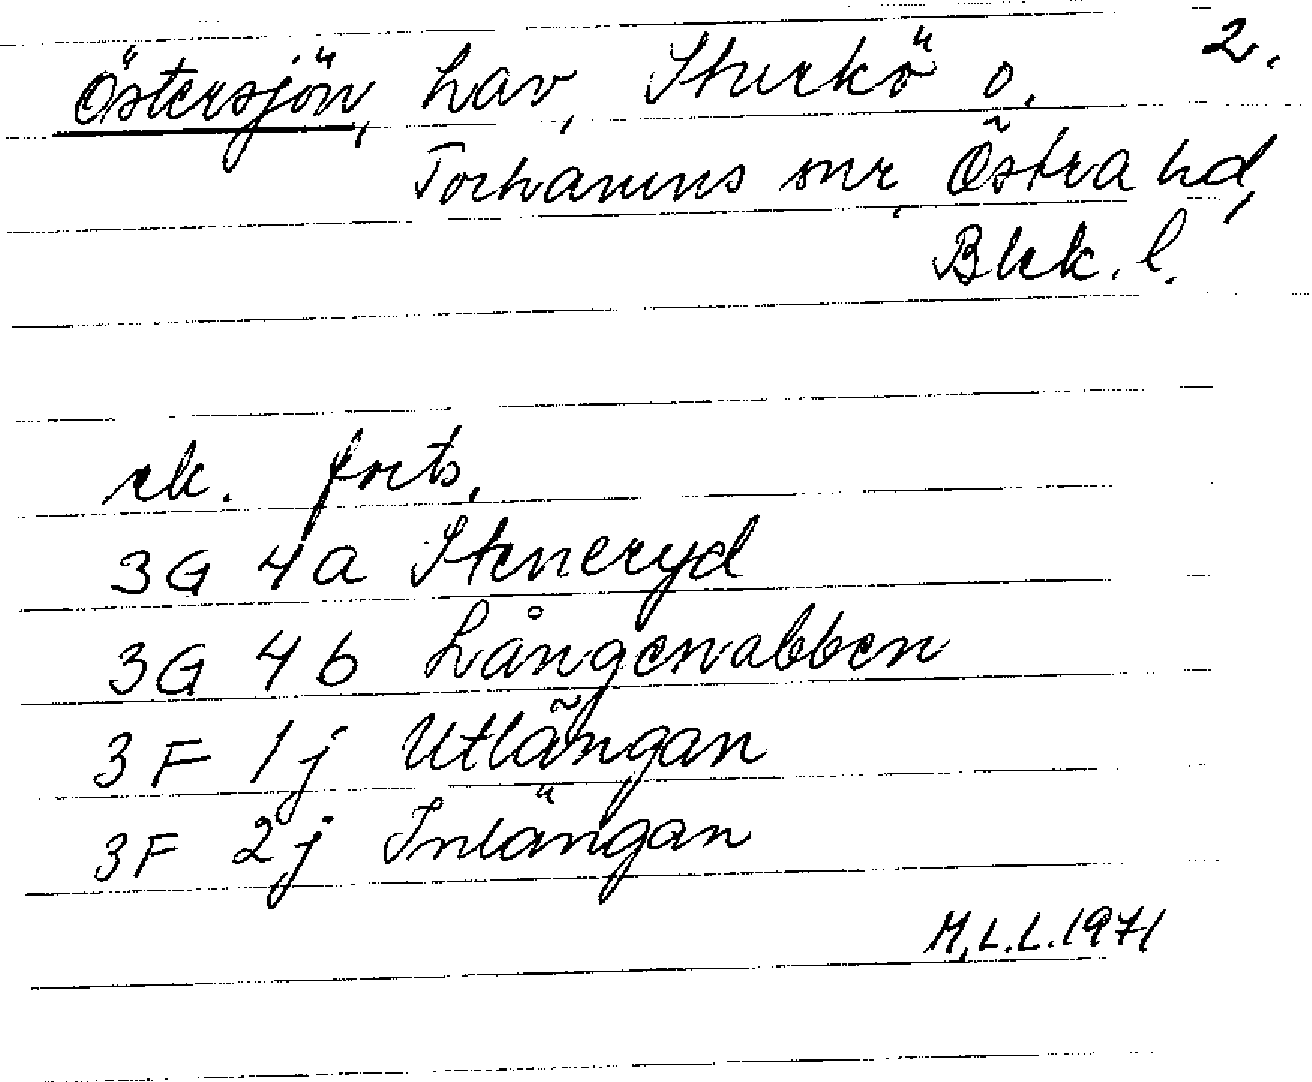 Östersjön, hav, Sturkö o. 2.
Torhamns snr, Östra hd,
Blek. l.
ek. forts.
3G 4a Steneryd
3G 4b Långenabben
3F 1j Utlängan
3F 2j Inlängan
M.L.L. 1971